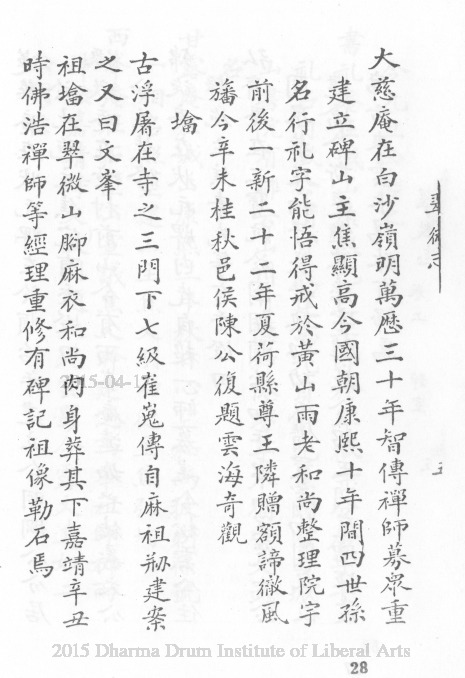 大慈庵在白沙嶺明萬歷三十年智傳禪師募眾重
建立碑山主焦顯高今國朝康熙十年間四世孫
名行礼字能悟得戒於黃山雨老和尚整理院宇
前後一新二十二年夏荷縣尊王隣贈額諦徹風
旛今辛未桂秋邑侯陳公復題雲海奇觀
墖
古浮屠在寺之三門下七級崔嵬傳自麻祖刱建案
之又曰文峯
祖墖在翠微山腳麻衣和尚肉身葬其下嘉靖辛丑
時佛浩禪師等經理重修有碑記祖像勒石焉
翠微志
五
2015 Dharma Drum Institute of Liberal Arts
28